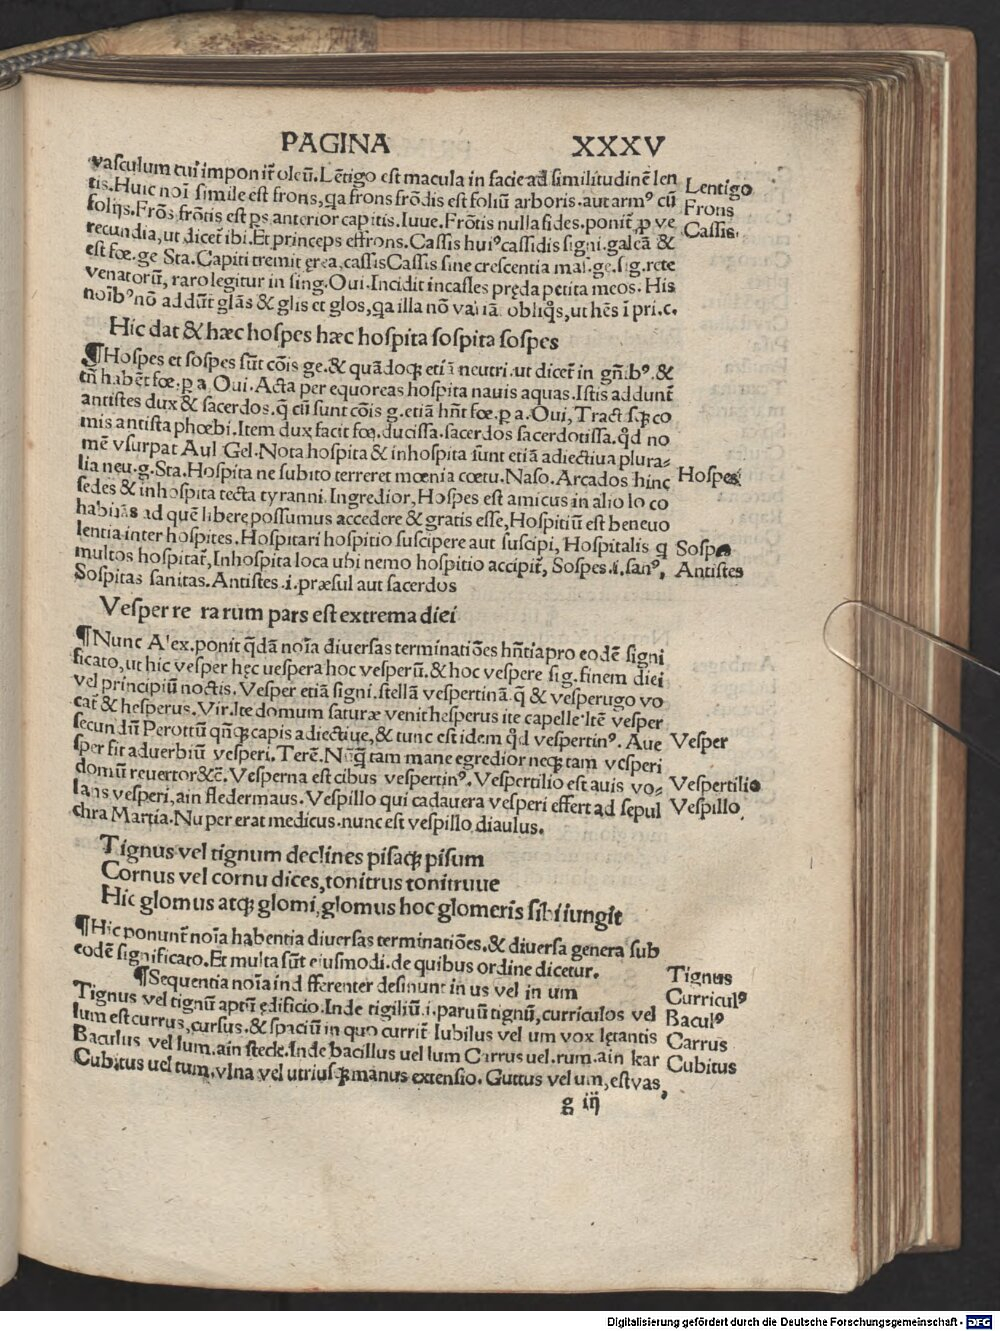 PAGINA XXXV
vasculum cui imponit᷑ oleū. Lētigo est macula in facie ad similitudinē len
tis. Huic noī simile est frons, qa frons frōdis est foliū arboris. aut armꝰ cū
folijs. Frōs frōtis est ps anterior capitis. Iuue. Frōtis nulla fides. ponit᷑ ꝓ ve
recundia, ut dicet᷑ ibi. Et princeps effrons. Cassis huiꝰ cassidis signi. galeā &
est foe. ge Sta. Capiti tremit ęrea, cassis Cassis sine crescentia mas. ge. sig. rete
venatorū, raro legitur in sing. Oui. Incidit in casses pręda petita meos. His
noībꝰ nō addūt glās & glis et glos, qa illa nō
Hic dat & hæc hospes hæc hospita sospita sospes
¶Hospes et sospes sūt cōis ge. & quādoqꝫ etiā neutri. ut dicet᷑ in gn̄ibꝰ. &
tn̄ habēt foe. p a Oui. Acta per equoreas hospita nauis aquas. Istis addunt᷑
antistes dux & sacerdos. q̄ cū sunt cōis g. etiā hn̄t foe. p a. Oui, Tractꝫ co
mis antista phoebi. Item dux facit foę. ducissa. sacerdos sacerdotissa. qd no
mē vsurpat Aul Gel. Nota hospita & inhospita sunt etiā adiectiua plura⸗
lia neu. g. Sta. Hospita ne subito terreret mœnia cœtu. Naso. Arcados hinc
sedes & inhospita tecta tyranni. Ingredior, Hospes est amicus in alio lo co
habitās ad quē libere possumus accedere & gratis esse, Hospitiū est beneuo
lentia inter hospites. Hospitari hospitio suscipere aut suscipi, Hospitalis q
multos hospitat᷑, Inhospita loca ubi nemo hospitio accipit᷑, Sospes .i. sanꝰ,
Sospitas sanitas. Antistes .i. præsul aut sacerdos
Vesper re rarum pars est extrema diei
¶Nunc Alex. ponit q̄dā noīa diuersas terminatiōes hn̄tia pro eodē signi
ficato, ut hic vesper hęc uespera hoc vesperū. & hoc vespere sig. finem diei
vel principiū noctis. Vesper etiā signi. stellā vespertinā q̄ & vesperugo vo
cat᷑ & hesperus. Vir. Ite domum saturæ venit hesperus ite capelle Itē vesper
secundū Perottū qn̄qꝫ capis adiectiue, & tunc est idem qd vespertinꝰ. Aue
sper fit aduerbiū vesperi. Terē. Nūq̄ tam mane egredior neqꝫ tam vesperi
domū reuertor &č. Vesperna est cibus vespertinꝰ. Vespertilio est auis vo⸗
lans vesperi, ain fledermaus. Vespillo qui cadauera vesperi effert ad sepul
chra Martia. Nuper erat medicus. nunc est vespillo diaulus.
Tignus vel tignum declines pisaqꝫ pisum
Cornus vel cornu dices, tonitrus tonitruue
Hic glomus atqꝫ glomi, glomus hoc glomeris sibi iungit
¶Hic ponunt᷑ noīa habentia diuersas terminatiōes. & diuersa genera sub
eodē significato. Et multa sūt eiusmodi. de quibus ordine dicetur.
¶Sequentia noīa indifferenter desinunt in us vel in um
Tignus vel tignū aptū edificio. Inde tigiliū .i. paruū tignū, curriculos vel
lum est currus, cursus. & spaciū in quo currit᷑ Iubilus vel um vox lętantis
Baculus vel lum. ain steck. Inde bacillus uel lum Carrus uel .rum. ain kar
Cubitus uel tum, vlna vel utriusqꝫ manus extensio. Guttus vel um, est vas,
g iij
Lentigo
Frons
Cassis.
Hospes
Sospes
Antistes
Vesper
Vespertilio
Vespillo
Tignus
Curriculꝰ
Baculꝰ
Carrus
Cubitus
Digitalisierung gefördert durch die Deutsche Forschungsgemeinschaft - DFG